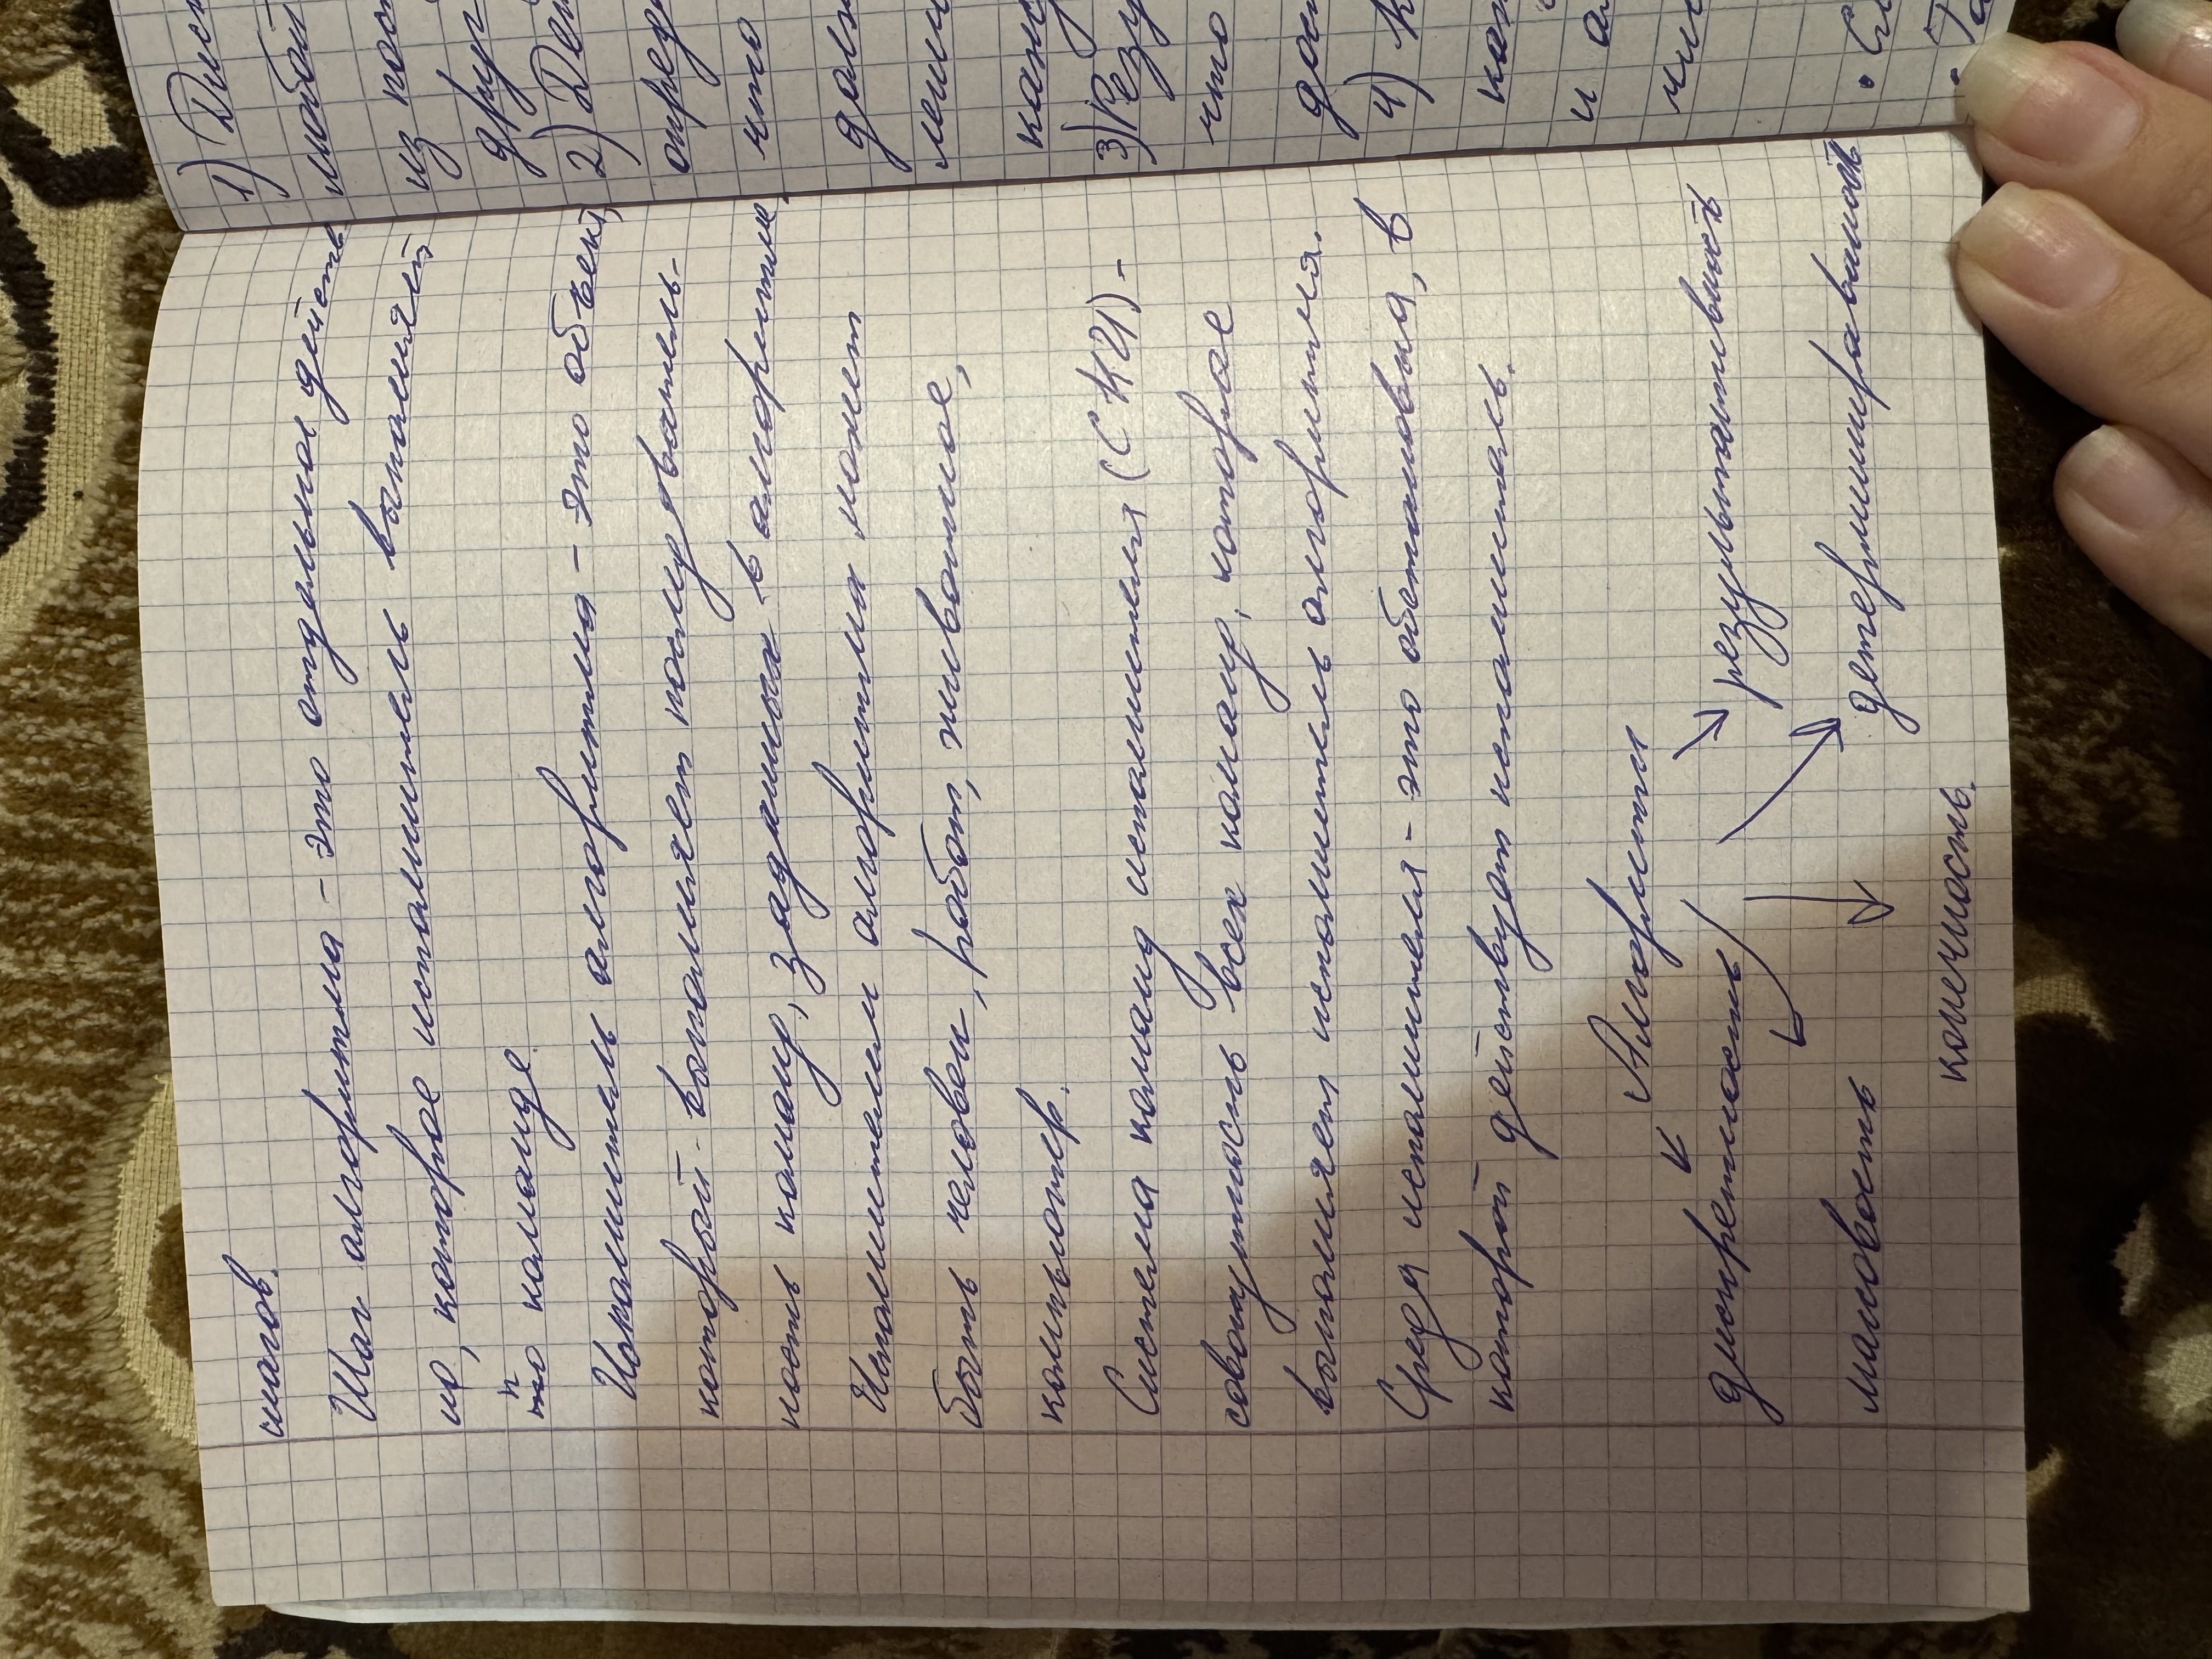 шагов.
Шаг алгоритма - это отдельное действ
ие, которое исполнитель выполняет
по команде.
Исполнитель алгоритма - это объект,
который выполняет последователь-
ность команд, заданных в алгоритме,
Исполнителем алгоритма может
быть человек, робот, животное,
компьютер.
Система команд исполнителя (СКИ) -
совокупность всех команд, которые
выполняет исполнитель алгоритма.
Среда исполнителя - это обстановка, в
которой действует исполнитель.
Алгоритм
дискретность
результативность
массовость
детерминированность
конечность.
1) Диск
любой
из
друг
2) Дет
опред
что
долж
коман
3) Резу
что
дос
4) К
и а